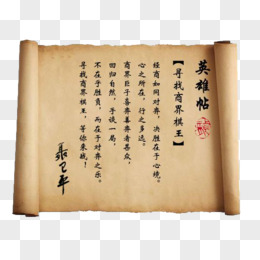 英雄帖
【寻找商界棋王】
经商如同对弈，决胜在于心境。
心之所在，行之多远。
商界巨子善弈善弈者甚众，
回归自然，手谈一局，
不在乎胜负，而在于对弈之乐。
寻找商界棋王，等你来战！
聂卫平